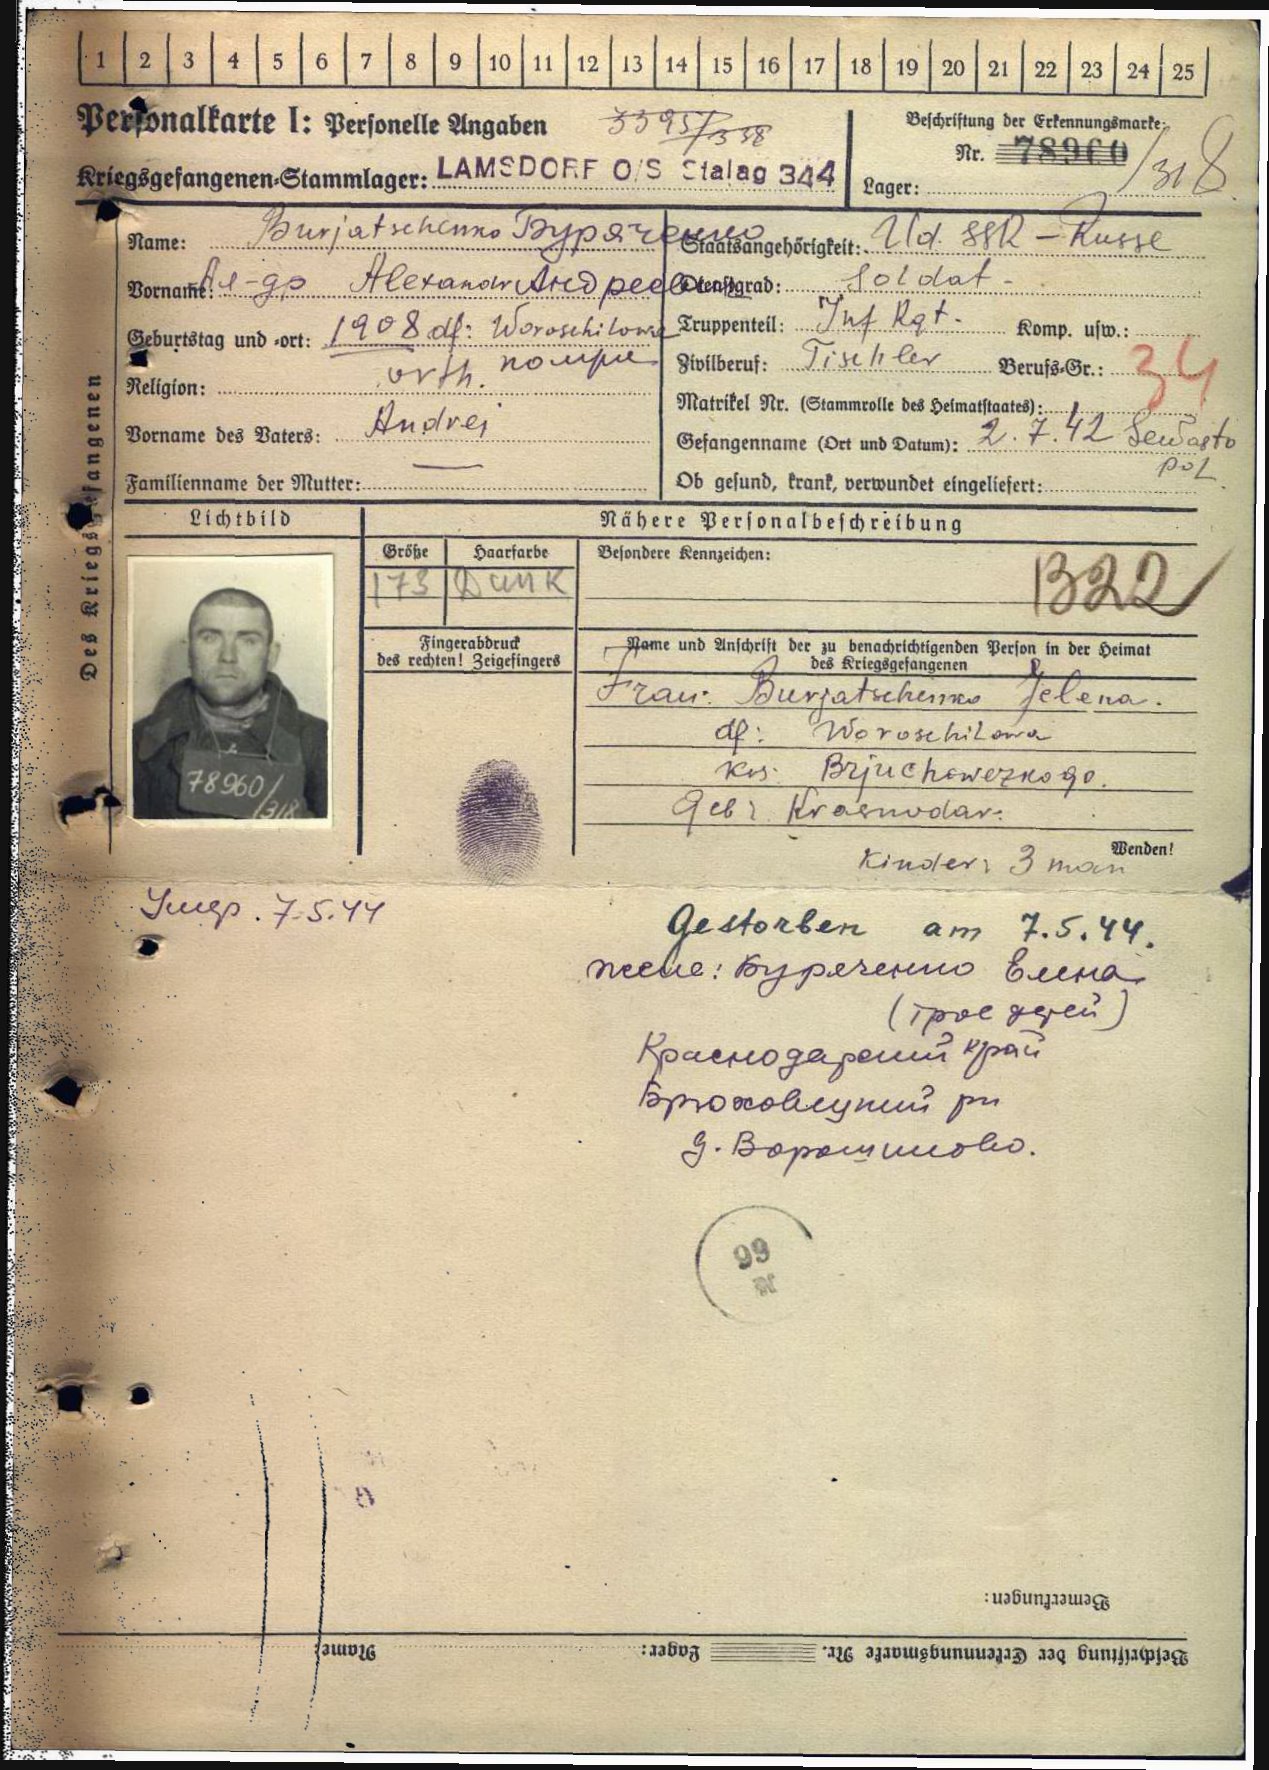 1 2 3 4 5 6 7 8 9 10 11 12 13 14 15 16 17 18 19 20 21 22 23 24 25
Personalkarte I: Personelle Angaben
Kriegsgefangenen-Stammlager: LAMSDORF O/S Stalag 344
Beschriftung der Erkennungsmarke:
Nr. 78960/318
Lager:
Des Kriegsgefangenen
Name: Burjatschenko Буряченко
Vorname: Ал-др Alexandr Андреевич
Geburtstag und -ort: 1908 df: Woroschilowa
Religion: orth.
Vorname des Vaters: Andrei
Familienname der Mutter: —
Staatsangehörigkeit: Ud. SSR – Russe
Dienstgrad: Soldat -
Truppenteil: Inf Rgt. Komp. usw.:
Zivilberuf: Tischler Berufs-Gr.: 34
Matrikel Nr. (Stammrolle des Heimatstaates):
Gefangenname (Ort und Datum): 2.7.42 Sewasto
pol
Ob gesund, krank, verwundet eingeliefert:
Lichtbild
78960/
318
Nähere Personalbeschreibung
Größe Haarfarbe Besondere Kennzeichen:
173 Dunk
B22
Fingerabdruck
des rechten! Zeigefingers
Name und Anschrift der zu benachrichtigenden Person in der Heimat
des Kriegsgefangenen
Frau: Burjatschenko Jelena.
df: Woroschilowa
Krs. Brjuchowezkogo.
Geb: Krasnodar.
Wenden!
Kinder: 3 man
Умер. 7.5.44
Gestorben am 7.5.44.
жена: Буряченко Елена
(трое детей)
Краснодарский край
Брюховецкий рн
д. Ворошилово.
66
Bemerkungen:
Beschriftung der Erkennungsmarke Nr. Lager: Name: